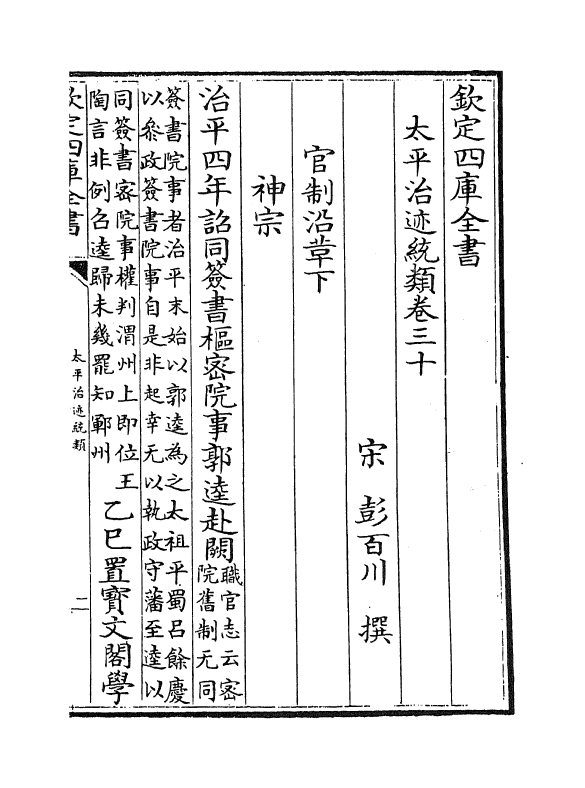 欽定四庫全書
太平治迹統類卷三十
宋 彭百川 撰
官制沿革下
神宗
治平四年詔同簽書樞密院事郭逵赴闕職官志云密
院舊制无同
簽書院事者治平末始以郭逵為之太祖平蜀吕餘慶
以叅政簽書院事自是非起幸无以執政守藩至逵以
同簽書密院事權判渭州上即位王
陶言非例召逵歸未幾罷知鄆州
乙巳置寳文閣學
欽定四庫全書
太平治迹統類